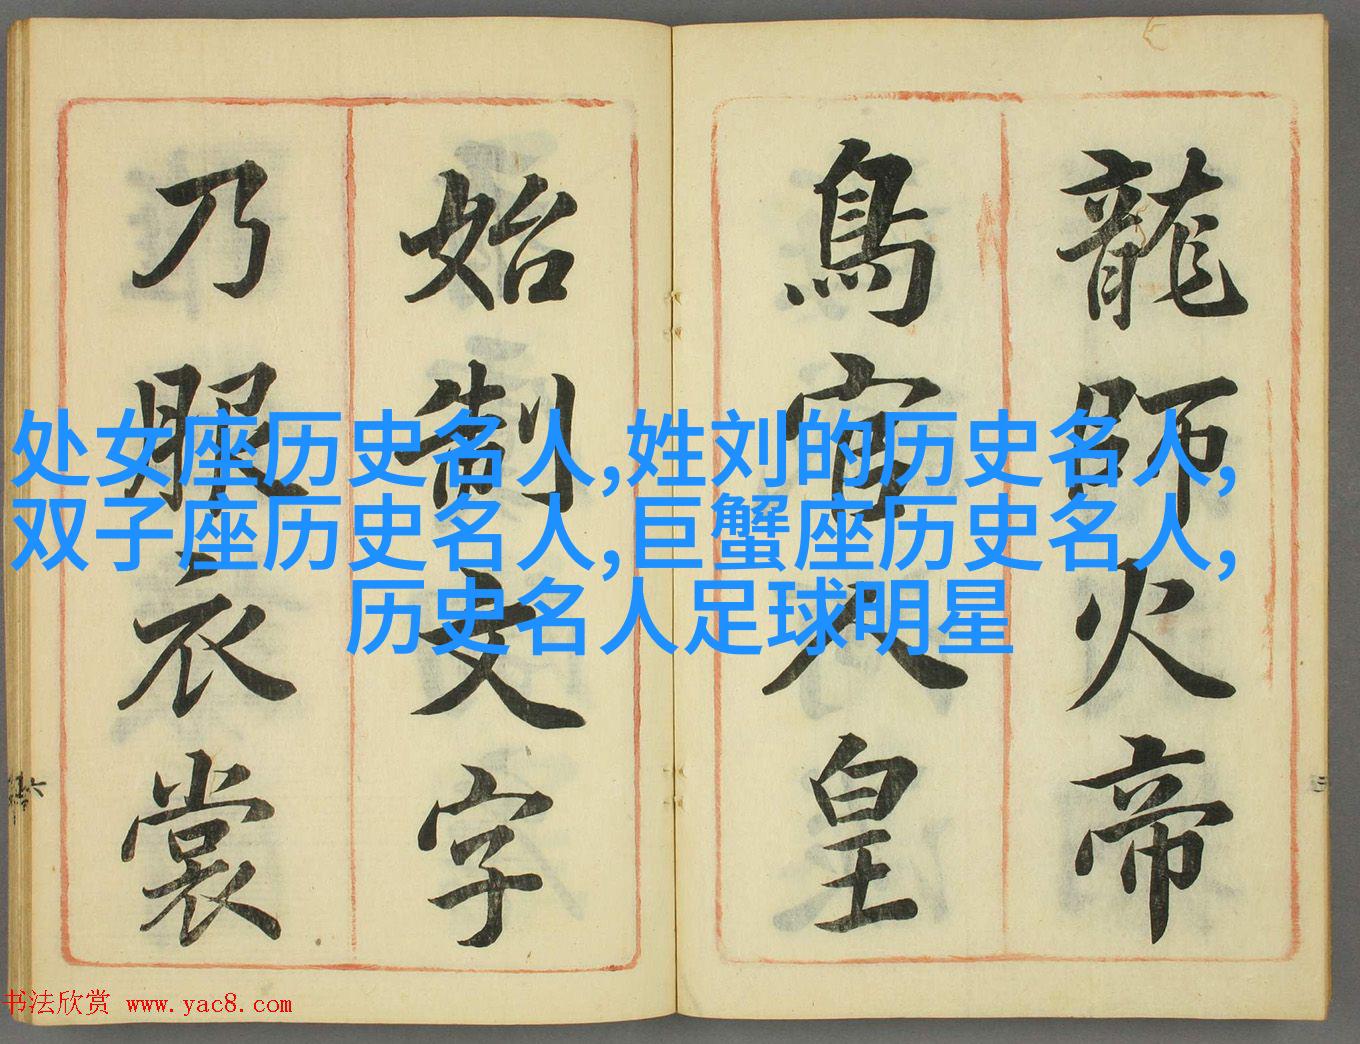 龍師火帝
鳥官人皇
始制文字
乃服衣裳
处女座历史名人,姓刘的历史名人,
双子座历史名人,巨蟹座历史名人,
历史名人足球明星
书法欣赏 www.yac8.com